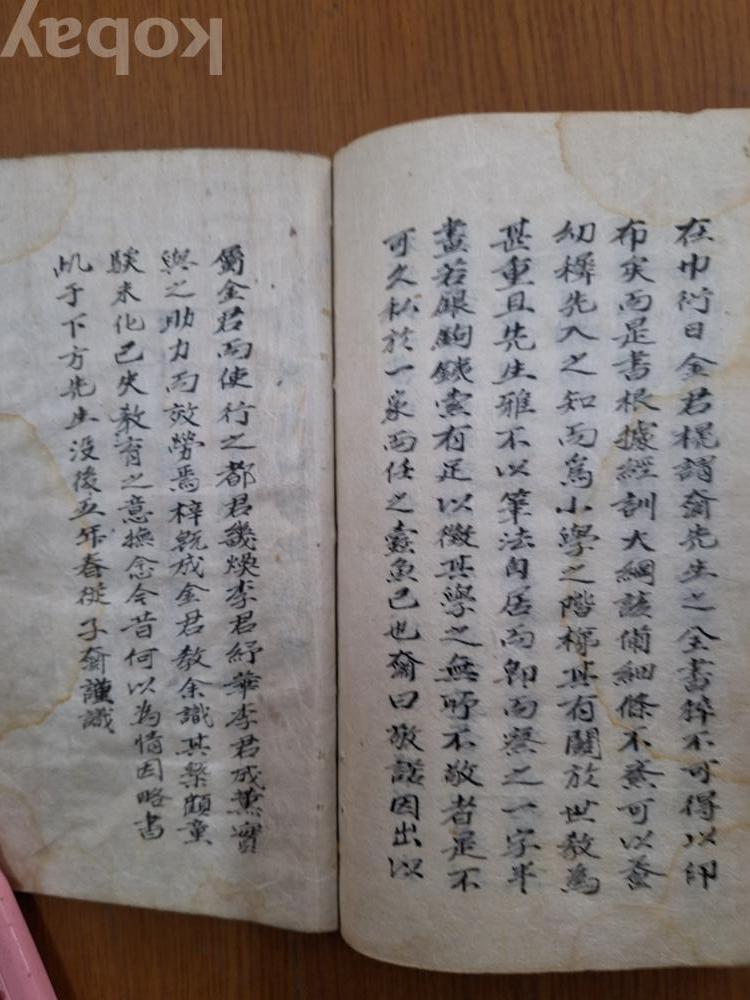 kobay
在巾衍日金君棍謂奫先生之全書猝不可得以印
布矣而是書根據經訓大綱該備細條不紊可以蚤
幼稺先入之知而爲小學之階梯其有關於世教爲
甚重且先生雅不以筆法自居而卽而察之一字半
畫若銀鉤鐵索有足以徵其學之無所不敬者是不
可久私於一家而任之蠹魚已也奫曰敬諾因出以
屬金君而使行之都君幾煥李君紓華李君成薰實
與之助力而效勞焉梓旣成金君教余識其槩顧童
騃未化已失教育之意撫念今昔何以為情因略書
此于下方先生没後五年春從子奫謹識